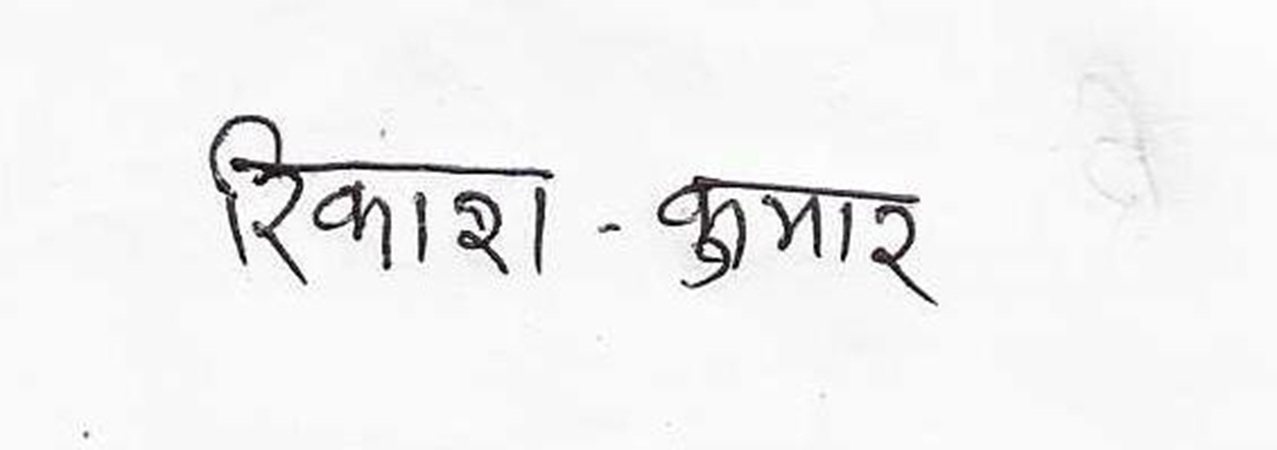 रिकाश - कुमार